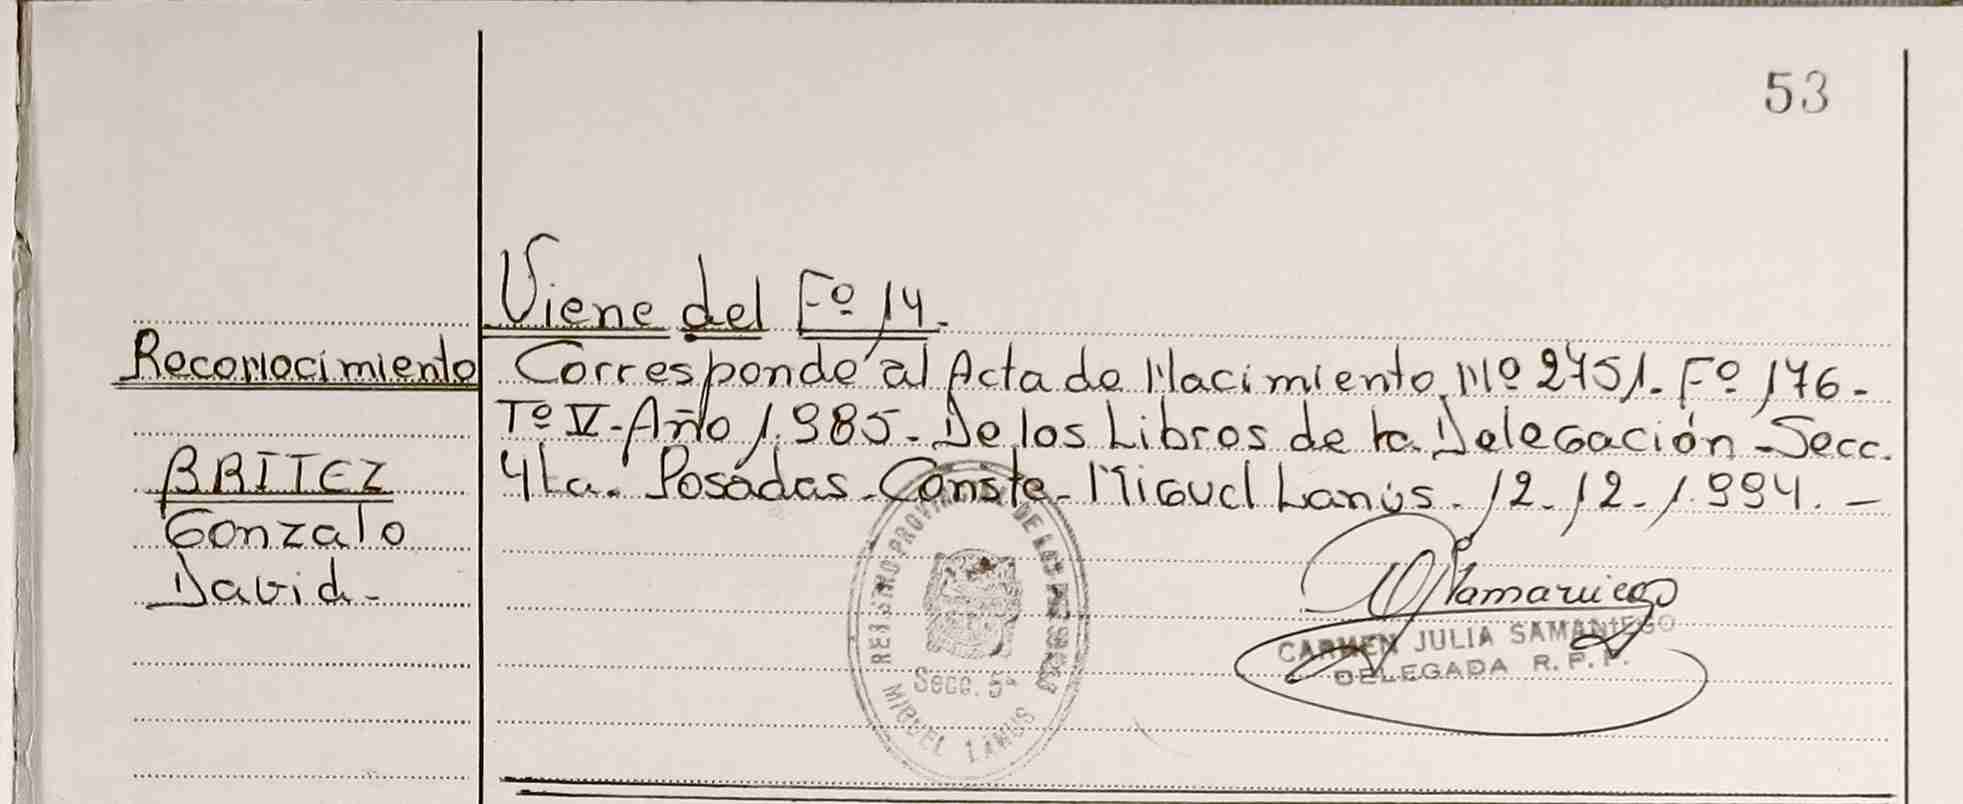 53
Viene del Fº 14.
Reconocimiento
Corresponde al Acta de Nacimiento Nº 2751. Fº 176.-
Tº V. Año 1.985. De los Libros de la Delegación - Secc.
BRITEZ
4ta. Posadas. Conste. Miguel Lanús. 12.12.1.994. -
Gonzalo
David.-
CARMEN JULIA SAMANIEGO
DELEGADA R.P.P.
REGISTRO PROVINCIAL DE LAS PERSONAS
Secc. 5ª
MIGUEL LANUS